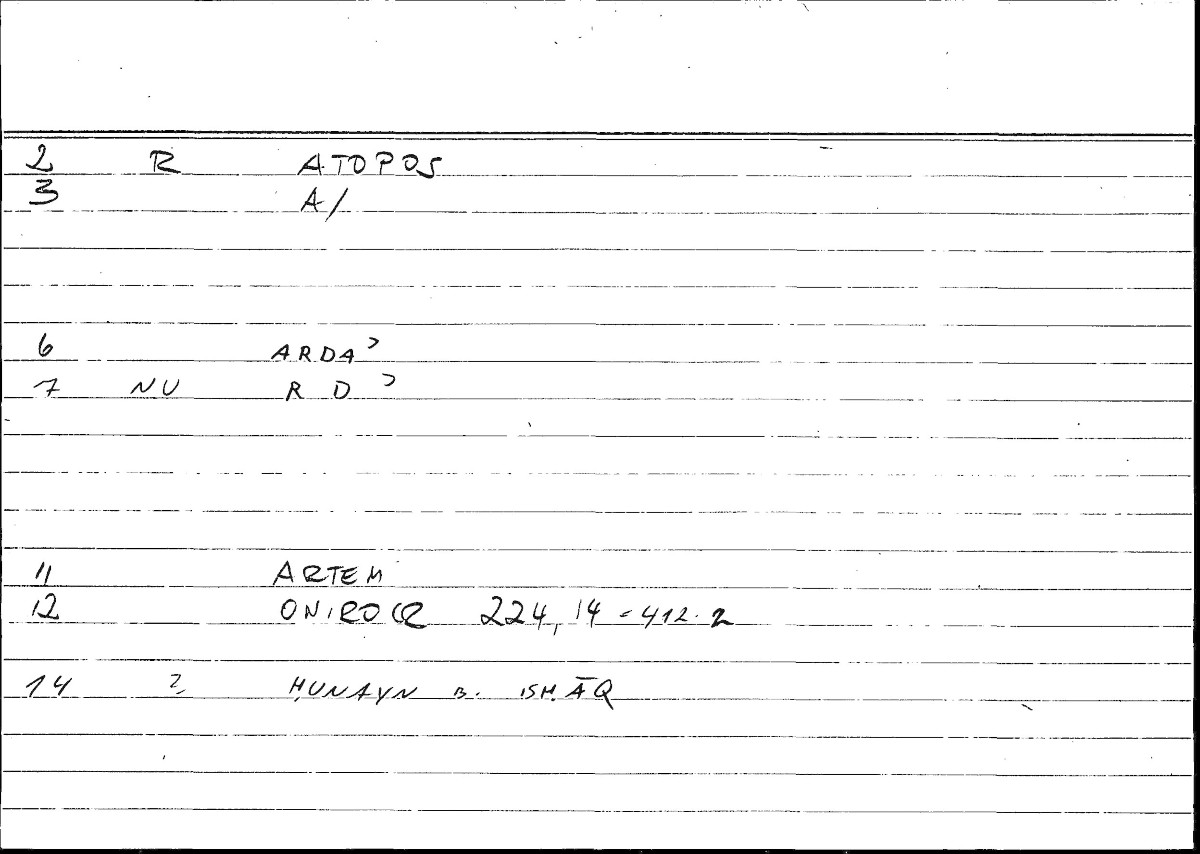 2 R ATOPOS
3 A/
6 ARDAʾ
7 NU R D ʾ
11 ARTEM
12 ONIROCR 224, 14 = 412.2
14 2 ḤUNAYN B. ISḤĀQ